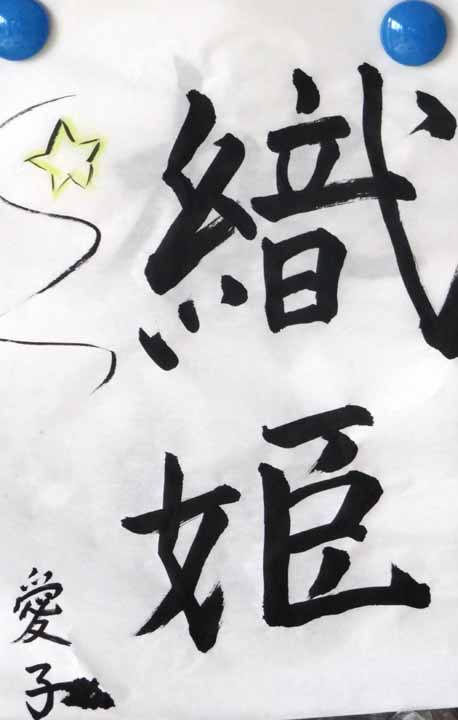 織姫
愛子